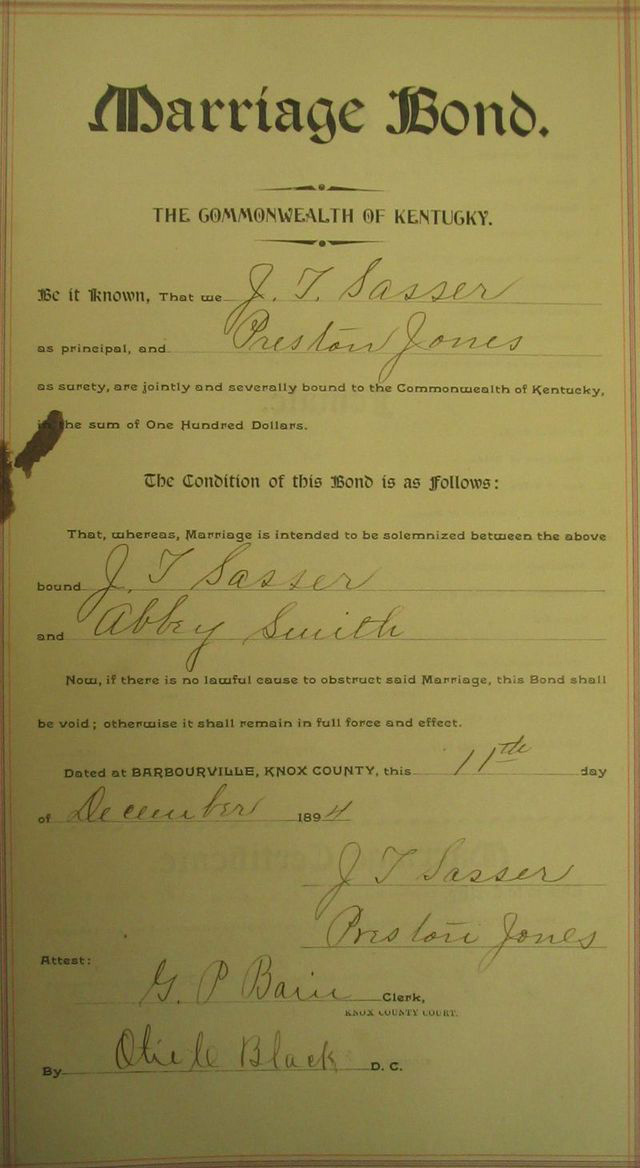 Marriage Bond.
THE COMMONWEALTH OF KENTUCKY.
Be it Known, That we J. T. Sasser
as principal, and Preston Jones
as surety, are jointly and severally bound to the Commonwealth of Kentucky,
in the sum of One Hundred Dollars.
The Condition of this Bond is as Follows:
That, whereas, Marriage is intended to be solemnized between the above
bound J. T Sasser
and Abbey Smith
Now, if there is no lawful cause to obstruct said Marriage, this Bond shall
be void; otherwise it shall remain in full force and effect.
Dated at BARBOURVILLE, KNOX COUNTY, this 11th day
of December 1894
J T Sasser
Preston Jones
Attest:
G. P Bain Clerk,
KNOX COUNTY COURT.
By Black D. C.